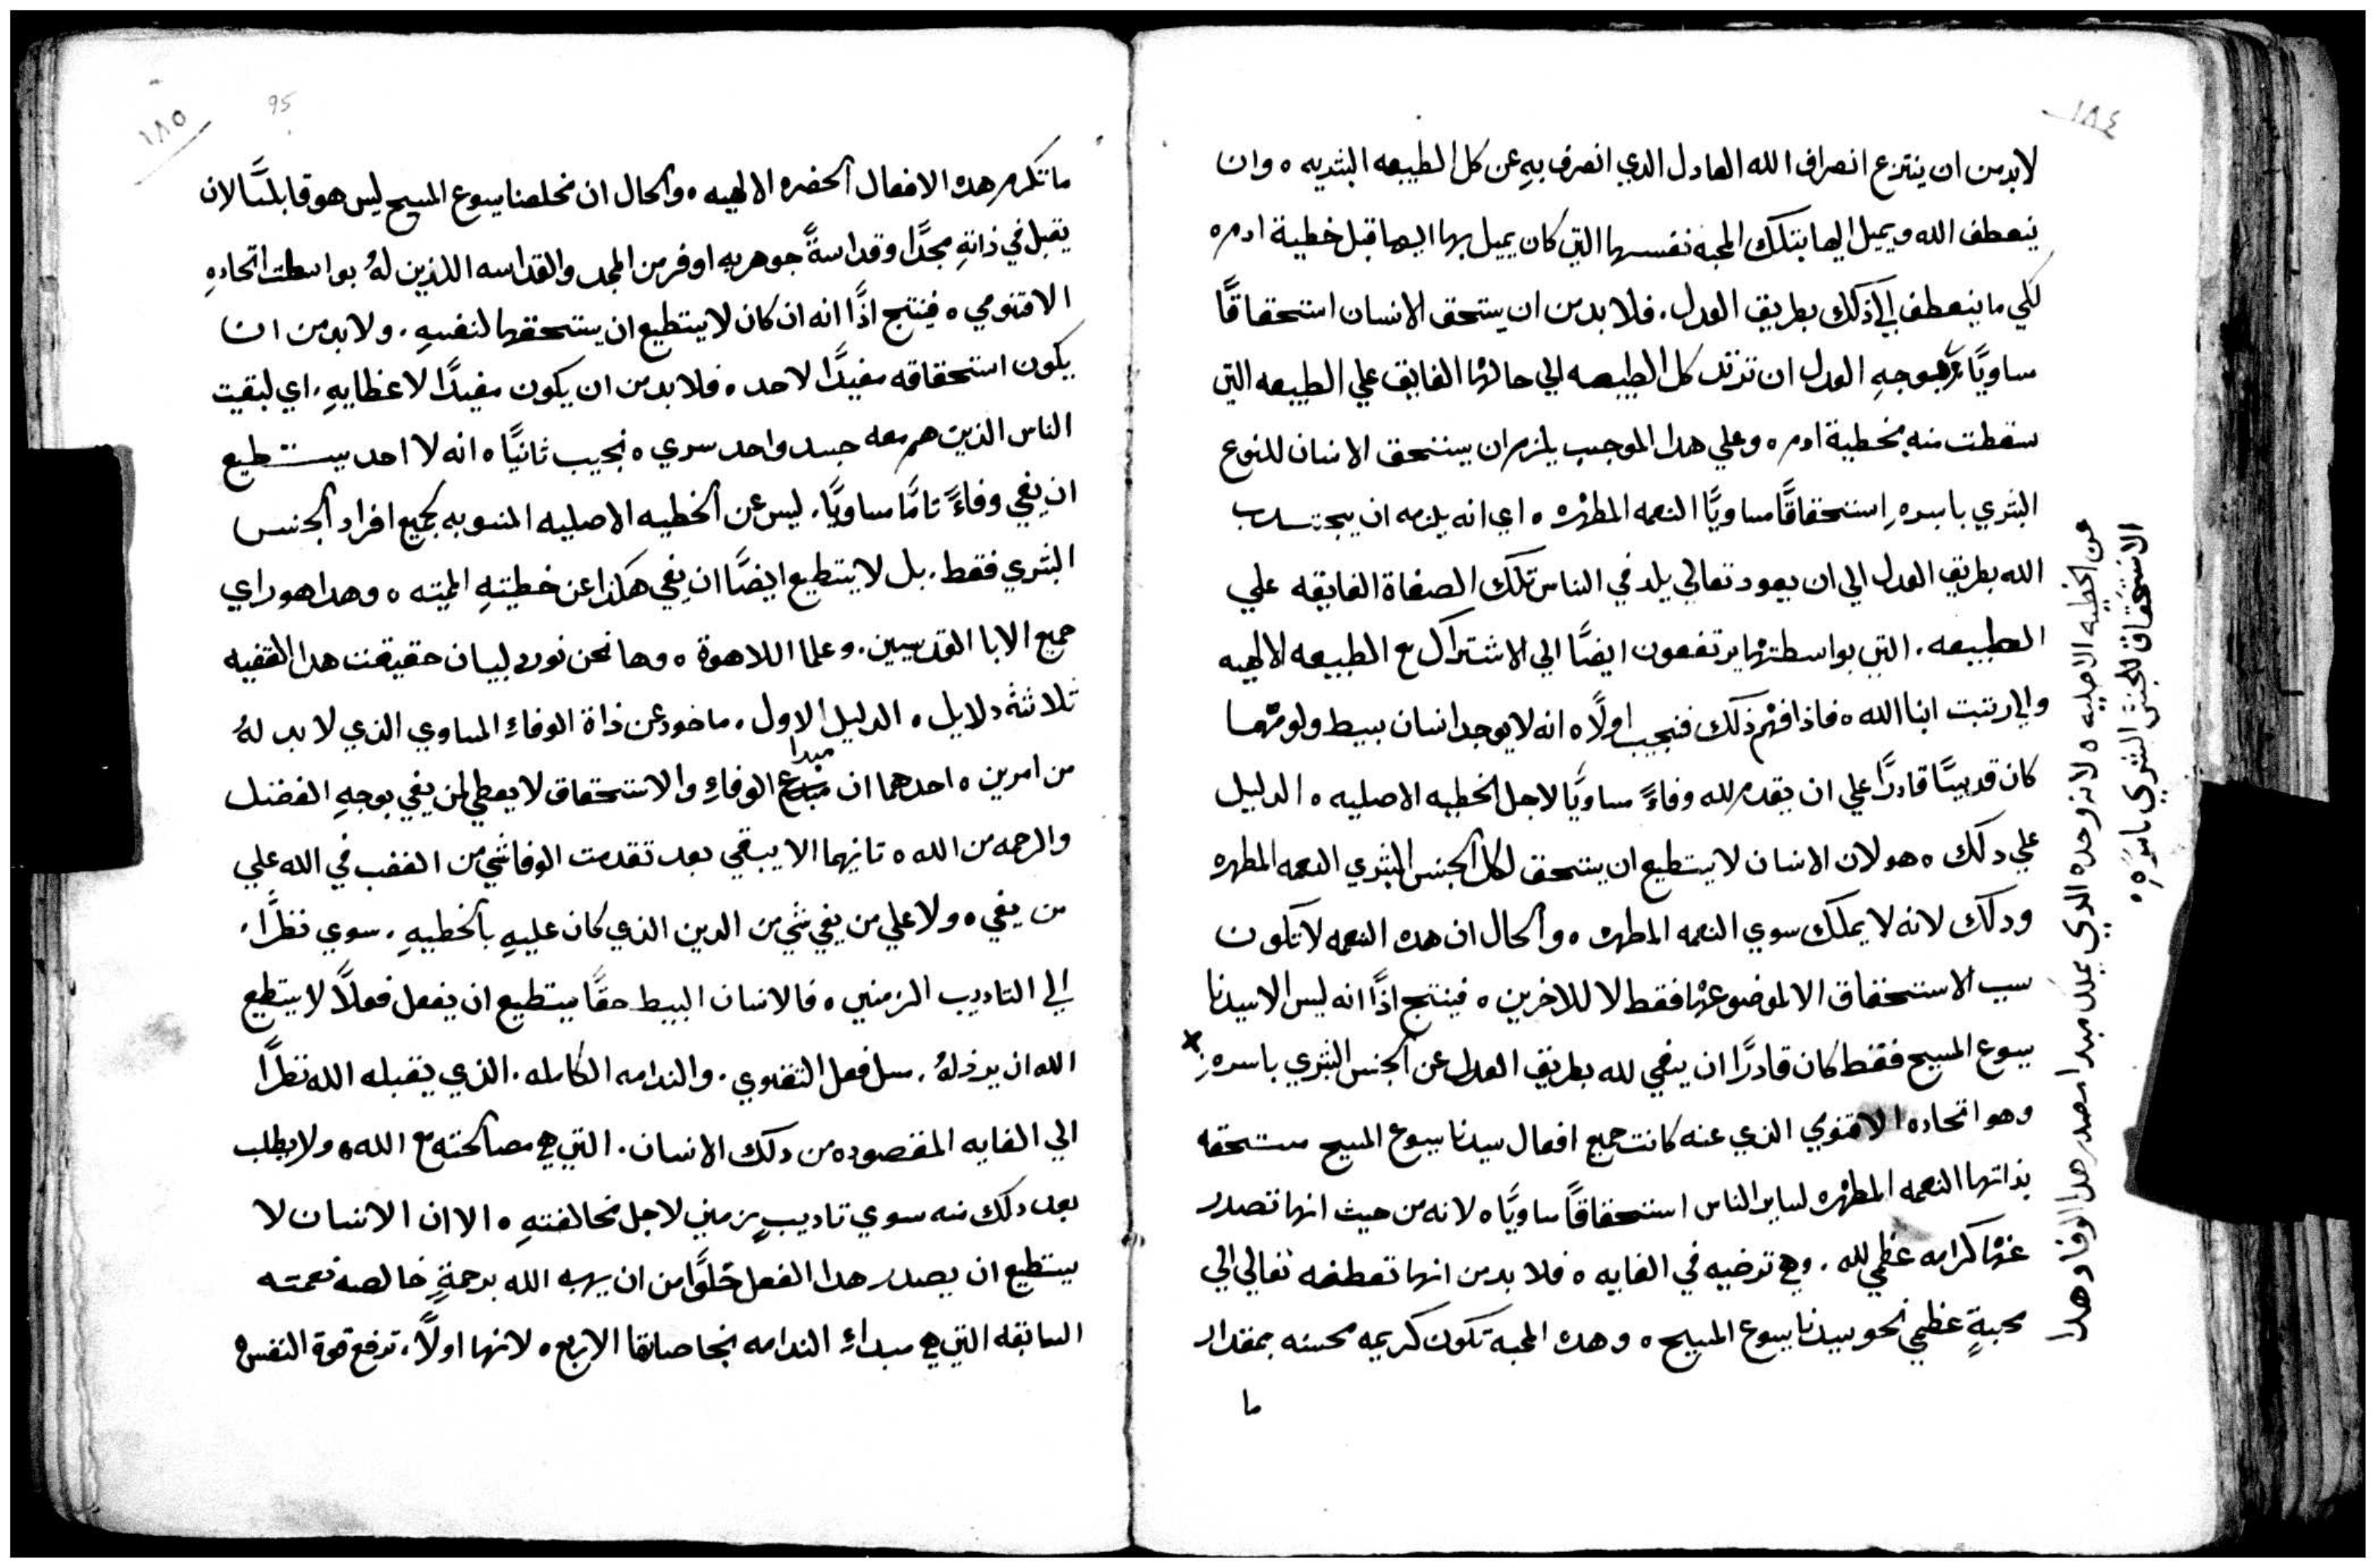 ١٨٤
لابد من ان ينتزع انصراف الله العادل الدي انصرف بهِ عن كل الطبيعه البشريه ٥ وان
ينعطف الله ويميل اليها بتلك المحبه نفسها التي كان يميل بها اليها قبل خطية ادم ٥
لكي ما ينعطف الي ذلك بطريق العدل . فلا بد من ان يستحق الانسان استحقاقًا
ساويًا بوجهِ العدل ان ترتد كل الطبيعه الي حالتها الفايق علي الطبيعه التي
سقطت منه بخطية ادم ٥ وعلي هدا الموجب يلزم ان يستحق الانسان للنوع
البشري باسره استحقاقًا مساويًا النعمه المطهره ٥ اي انه يلزمه ان يجتدب
الله بطريق العدل الي ان يعود تعالي يلد في الناس تلك الصفاة الفايقه علي
الطبيعه . التي بواسطتها يرتفعون ايضًا الي الاشتراك مع الطبيعه الالهيه
والي رتبت ابنا الله ٥ فاذا فهم ذلك فنجيب اولًا ٥ انه لا يوجد انسان بسيط ولو مهما
كان قديسًا قادرًا علي ان يقدم لله وفاءً مساويًا لاجل الخطيه الاصليه ٥ الدليل
علي دلك ٥ هو لان الانسان لا يستطيع ان يستحق لكل الجنس البشري النعمه المطهره
ودلك لانه لا يملك سوي النعمه المطهره ٥ والحال ان هده النعمه لا تكون
سبب الاستحقاق الا لموضوعها فقط لا للاخرين ٥ فينتج اذًا انه ليس الا سيدنا
يسوع المسيح فقط كان قادرًا ان يفي لله بطريق العدل عن الجنس البشري باسرهِ x
وهو اتحاده الاقنومي الذي عنه كانت جميع افعال سيدنا يسوع المسيح مستحقه
بذاتها النعمه المطهره لساير الناس استحقاقًا ساويًا ٥ لانه من حيث انها تصدر
عنها كرامه عظمي لله . وهي ترضيه في الغايه ٥ فلا بد من انها تعطفه تعالي الي
محبةٍ عظمي نحو سيدنا يسوع المسيح ٥ وهده المحبه تكون كريمه محسنه بمقدار
ما
عن الخطيه الاصليه ٥ لانه وحده الدي يملك مبدا مصدر هدا الوفا وهدا
الاستحقاق للجنس البشري باسرهِ ٥
١٨٥
95
ما تكرم هده الافعال الحضره الالهيه ٥ والحال ان مخلصنا يسوع المسيح ليس هو قابلًا لان
يقبل في ذاتهِ مجدًا وقداسةً جوهريه اوفر من المجد والقداسه اللذين لهُ بواسطت اتحادهِ
الاقنومي ٥ فينتج اذًا انه ان كان لا يستطيع ان يستحقها لنفسهِ . ولا بد من ان
يكون استحقاقه مفيدًا لاحد ٥ فلا بد من ان يكون مفيدًا لاعظايهِ . اي لبقيت
الناس الذين هم معه جسد واحد سري ٥ نجيب ثانيًا ٥ انه لا احد يستطيع
ان يفي وفاءً تامًا ساويًا . ليس عن الخطيه الاصليه المنسوبه لجميع افراد الجنس
البشري فقط . بل لا يستطيع ايضًا ان يفي هكذا عن خطيتهِ المميته ٥ وهدا هو راي
جميع الابا القديسيين . وعلما اللاهوة ٥ وها نحن نورد لبيان حقيقت هدا القضيه
ثلاثثه دلايل ٥ الدليل الاول . ماخود عن ذاة الوفاء المساوي الذي لا بد لهُ
مبدا
من امرين ٥ احدهما ان مبدع الوفاءِ والاستحقاق لا يعطي لمن يفي بوجهِ الفضل
والرحمه من الله ٥ ثانيهما الا يبقي بعد تقدمت الوفا شي من الغضب في الله علي
من يفي ٥ ولا علي من يفي شي من الدين الذي كان عليهِ بالخطيهِ . سوي نظرًا
الي التاديب الزمني ٥ فالانسان البسيط حقًا يستطيع ان يفعل فعلًا لا يستطيع
الله ان يرذلهُ . مثل فعل التقوي . والندامه الكامله . الذي يقبله الله نظرًا
الي الغايه المقصوده من دلك الانسان . التي هي مصالحته مع الله ٥ ولا يطلب
بعد دلك منه سوي تاديبٍ زمني لاجل مخالفتهِ ٥ الا ان الانسان لا
يستطيع ان يصدر هدا الفعل خلوًا من ان يهبه الله برحمةٍ خالصه نعمته
السابقه التي هي مبداء الندامه الاربع ٥ لانها اولًا . ترفع قوة النفس